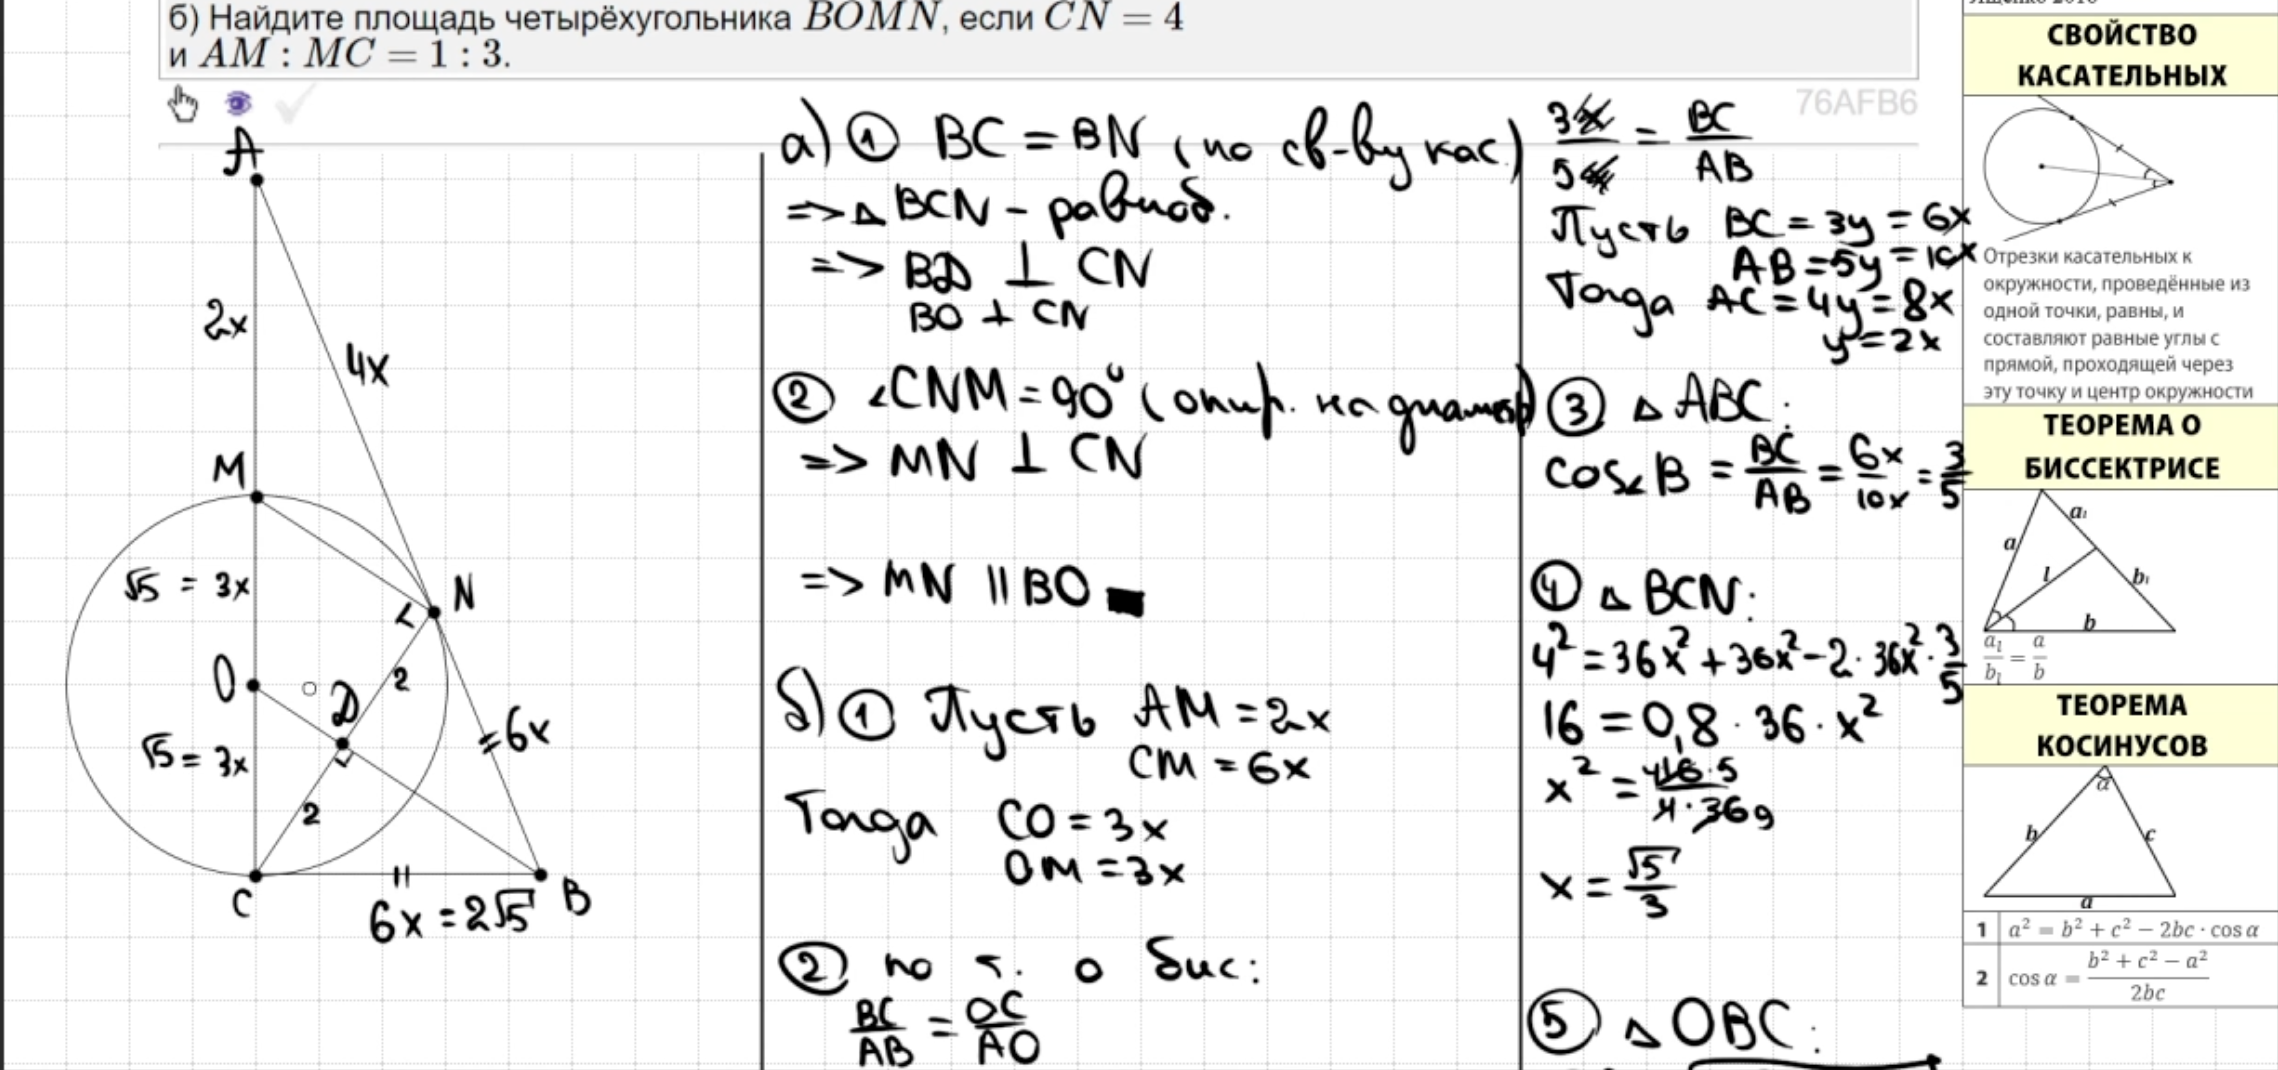 б) Найдите площадь четырёхугольника BOMN, если CN = 4
и AM : MC = 1 : 3.
76AFB6
A
2x
4x
M
√5 = 3x
N
O
D
2
√5 = 3x
2
=6x
C
6x = 2√5
B
а) ① BC = BN (по св-ву кас.)
=> △ BCN - равноб.
=> BD ⊥ CN
BO ⊥ CN
② ∠CNM = 90° (опир. на диаметр)
=> MN ⊥ CN
=> MN || BO
б) ① Пусть AM = 2x
CM = 6x
Тогда CO = 3x
OM = 3x
② по т. о бис:
BC/AB = OC/AO
3x/5x = BC/AB
Пусть BC = 3y = 6x
AB = 5y = 10x
Тогда AC = 4y = 8x
y = 2x
③ △ ABC:
cos∠B = BC/AB = 6x/10x = 3/5
④ △ BCN:
4² = 36x² + 36x² - 2 · 36x² · 3/5
16 = 0,8 · 36 · x²
x² = 16·5/4·36 9
x = √5/3
⑤ △ OBC:
СВОЙСТВО
КАСАТЕЛЬНЫХ
Отрезки касательных к
окружности, проведённые из
одной точки, равны, и
составляют равные углы с
прямой, проходящей через
эту точку и центр окружности
ТЕОРЕМА О
БИССЕКТРИСЕ
a a₁ l b₁ b
a₁/b₁ = a/b
ТЕОРЕМА
КОСИНУСОВ
α b c a
1 a² = b² + c² − 2bc · cos α
2 cos α = (b² + c² − a²)/2bc